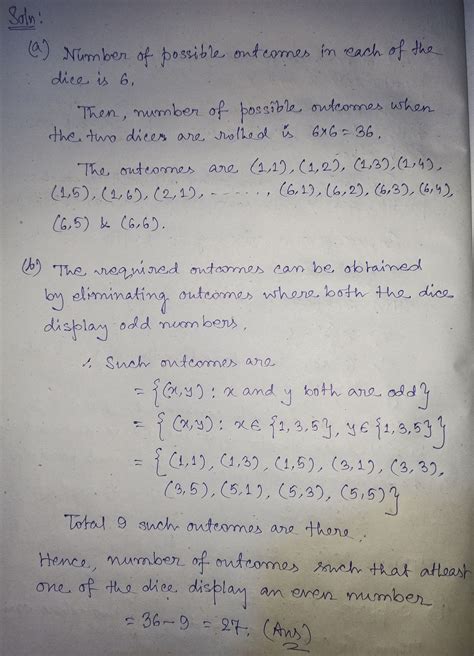 Soln:
(a) Number of possible outcomes in each of the
dice is 6.
Then, number of possible outcomes when
the two dices are rolled is 6×6 = 36.
The outcomes are (1,1), (1,2), (1,3), (1,4),
(1,5), (1,6), (2,1), - - - - - -, (6,1), (6,2), (6,3), (6,4),
(6,5) & (6,6).
(b) The required outcomes can be obtained
by eliminating outcomes where both the dice
display odd numbers.
∴ Such outcomes are
= {(x,y) : x and y both are odd}
= {(x,y) : x ∈ {1,3,5}, y ∈ {1,3,5}}
= {(1,1), (1,3), (1,5), (3,1), (3,3),
(3,5), (5,1), (5,3), (5,5)}
Total 9 such outcomes are there.
Hence, number of outcomes such that atleast
one of the dice display an even number
= 36-9 = 27. (Ans)